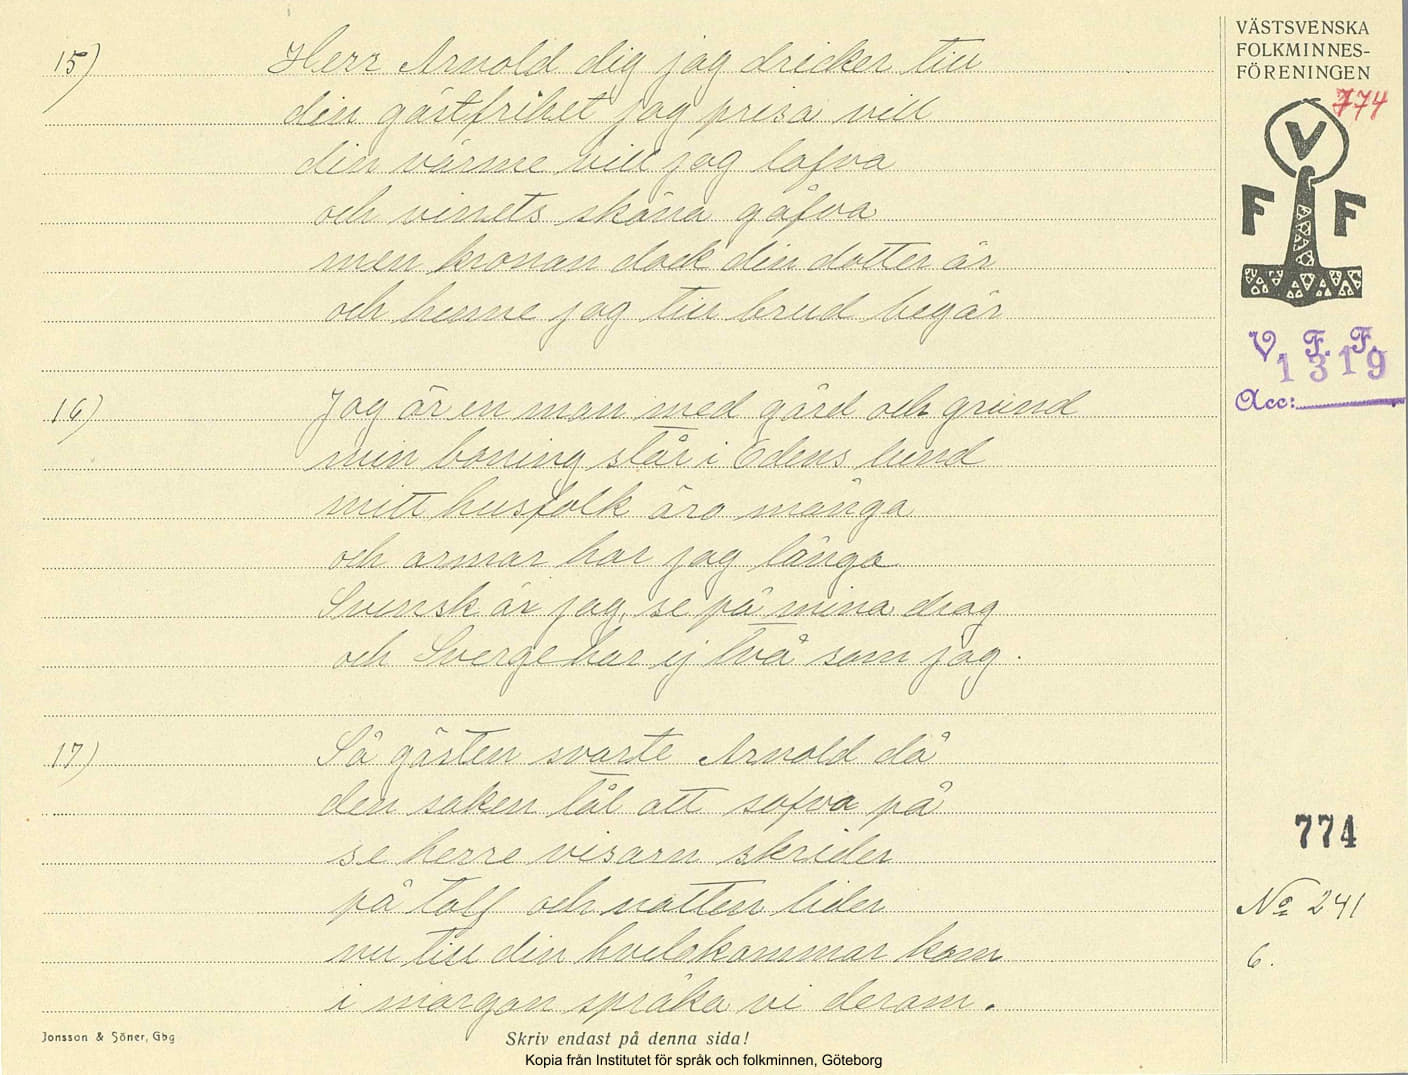 VÄSTSVENSKA
FOLKMINNES-
FÖRENINGEN
774
V
F F
V. F. F.
1319
Acc:
774
No 241
6.
15) Herr Arnold dig jag dricker till
din gästfrihet jag prisa vill
din värme vill jag lofva
och vinets sköna gåfva
men kronan dock din dotter är
och henne jag till brud begär
16) Jag är en man med gård och grund
min boning står i Edens lund
mitt husfolk äro många
och armar har jag långa
Svensk är jag, se på mina drag
och Sverge har ej två som jag.
17) Så gästen svarte Arnold då
den saken tål att sofva på
se herre visarn skrider
på tolf och natten lider
nu till din hvilokammar kom
i morgon språka vi derom.
Jonsson & Söner, Gbg
Skriv endast på denna sida!
Kopia från Institutet för språk och folkminnen, Göteborg